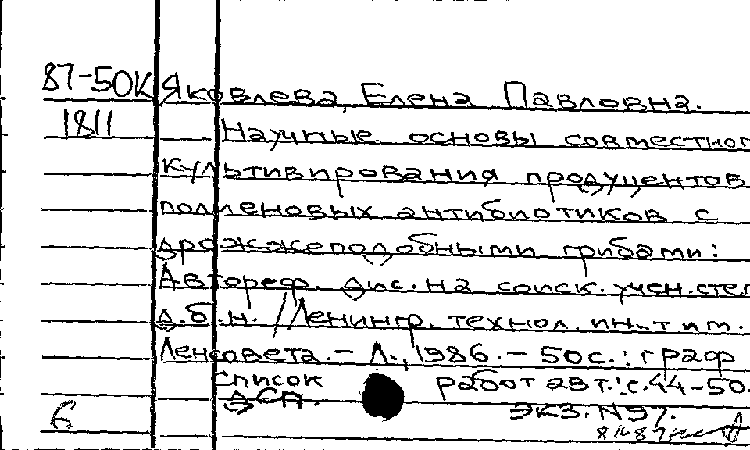 87-50К Яковлева, Елена Павловна.
1811 Научные основы совместног
культивирования продуцентов
полиеновых антибиотиков с
дрожжеподобными грибами:
Автореф. дис. на соиск. учен. степ
д.б.н. / Ленингр. технол. ин-т им.
Ленсовета. - Л., 1986. - 50с.: граф
Список работ авт.: с.44-50.
ДСП. экз. N97.
6